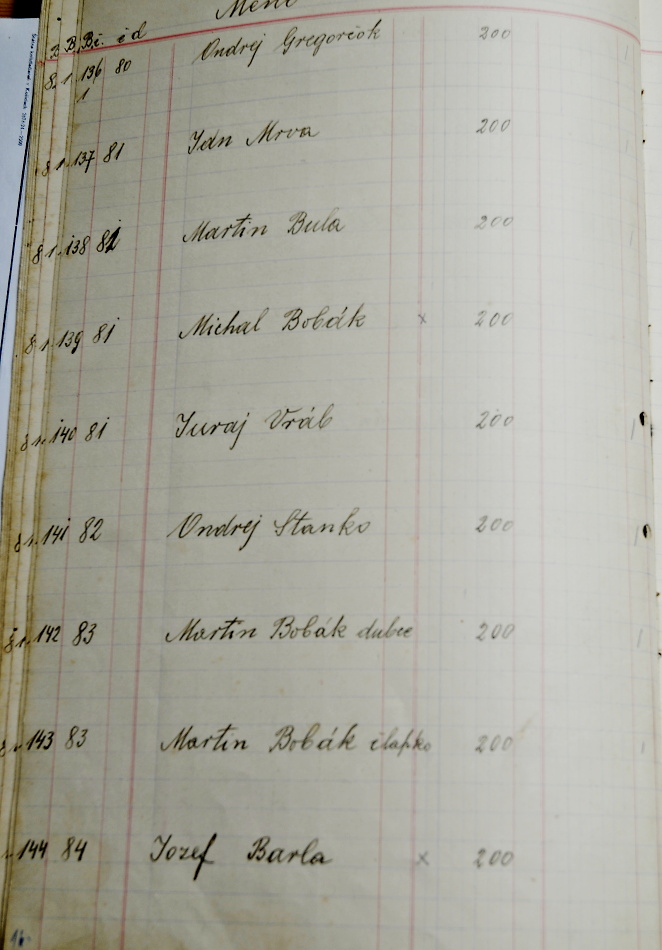 Meno
B. Bč. č d
8.1. 136 80 Ondrej Gregorčok 200
1
8 1. 137 81 Ján Mrva 200
8 1. 138 81 Martin Bula 200
8 1. 139 81 Michal Bobák x 200
8 1. 140 81 Juraj Vráb 200
8 1. 141 82 Ondrej Stanko 200
8 1. 142 83 Martin Bobák dubec 200
143 83 Martin Bobák člapko 200
144 84 Jozef Barla x 200